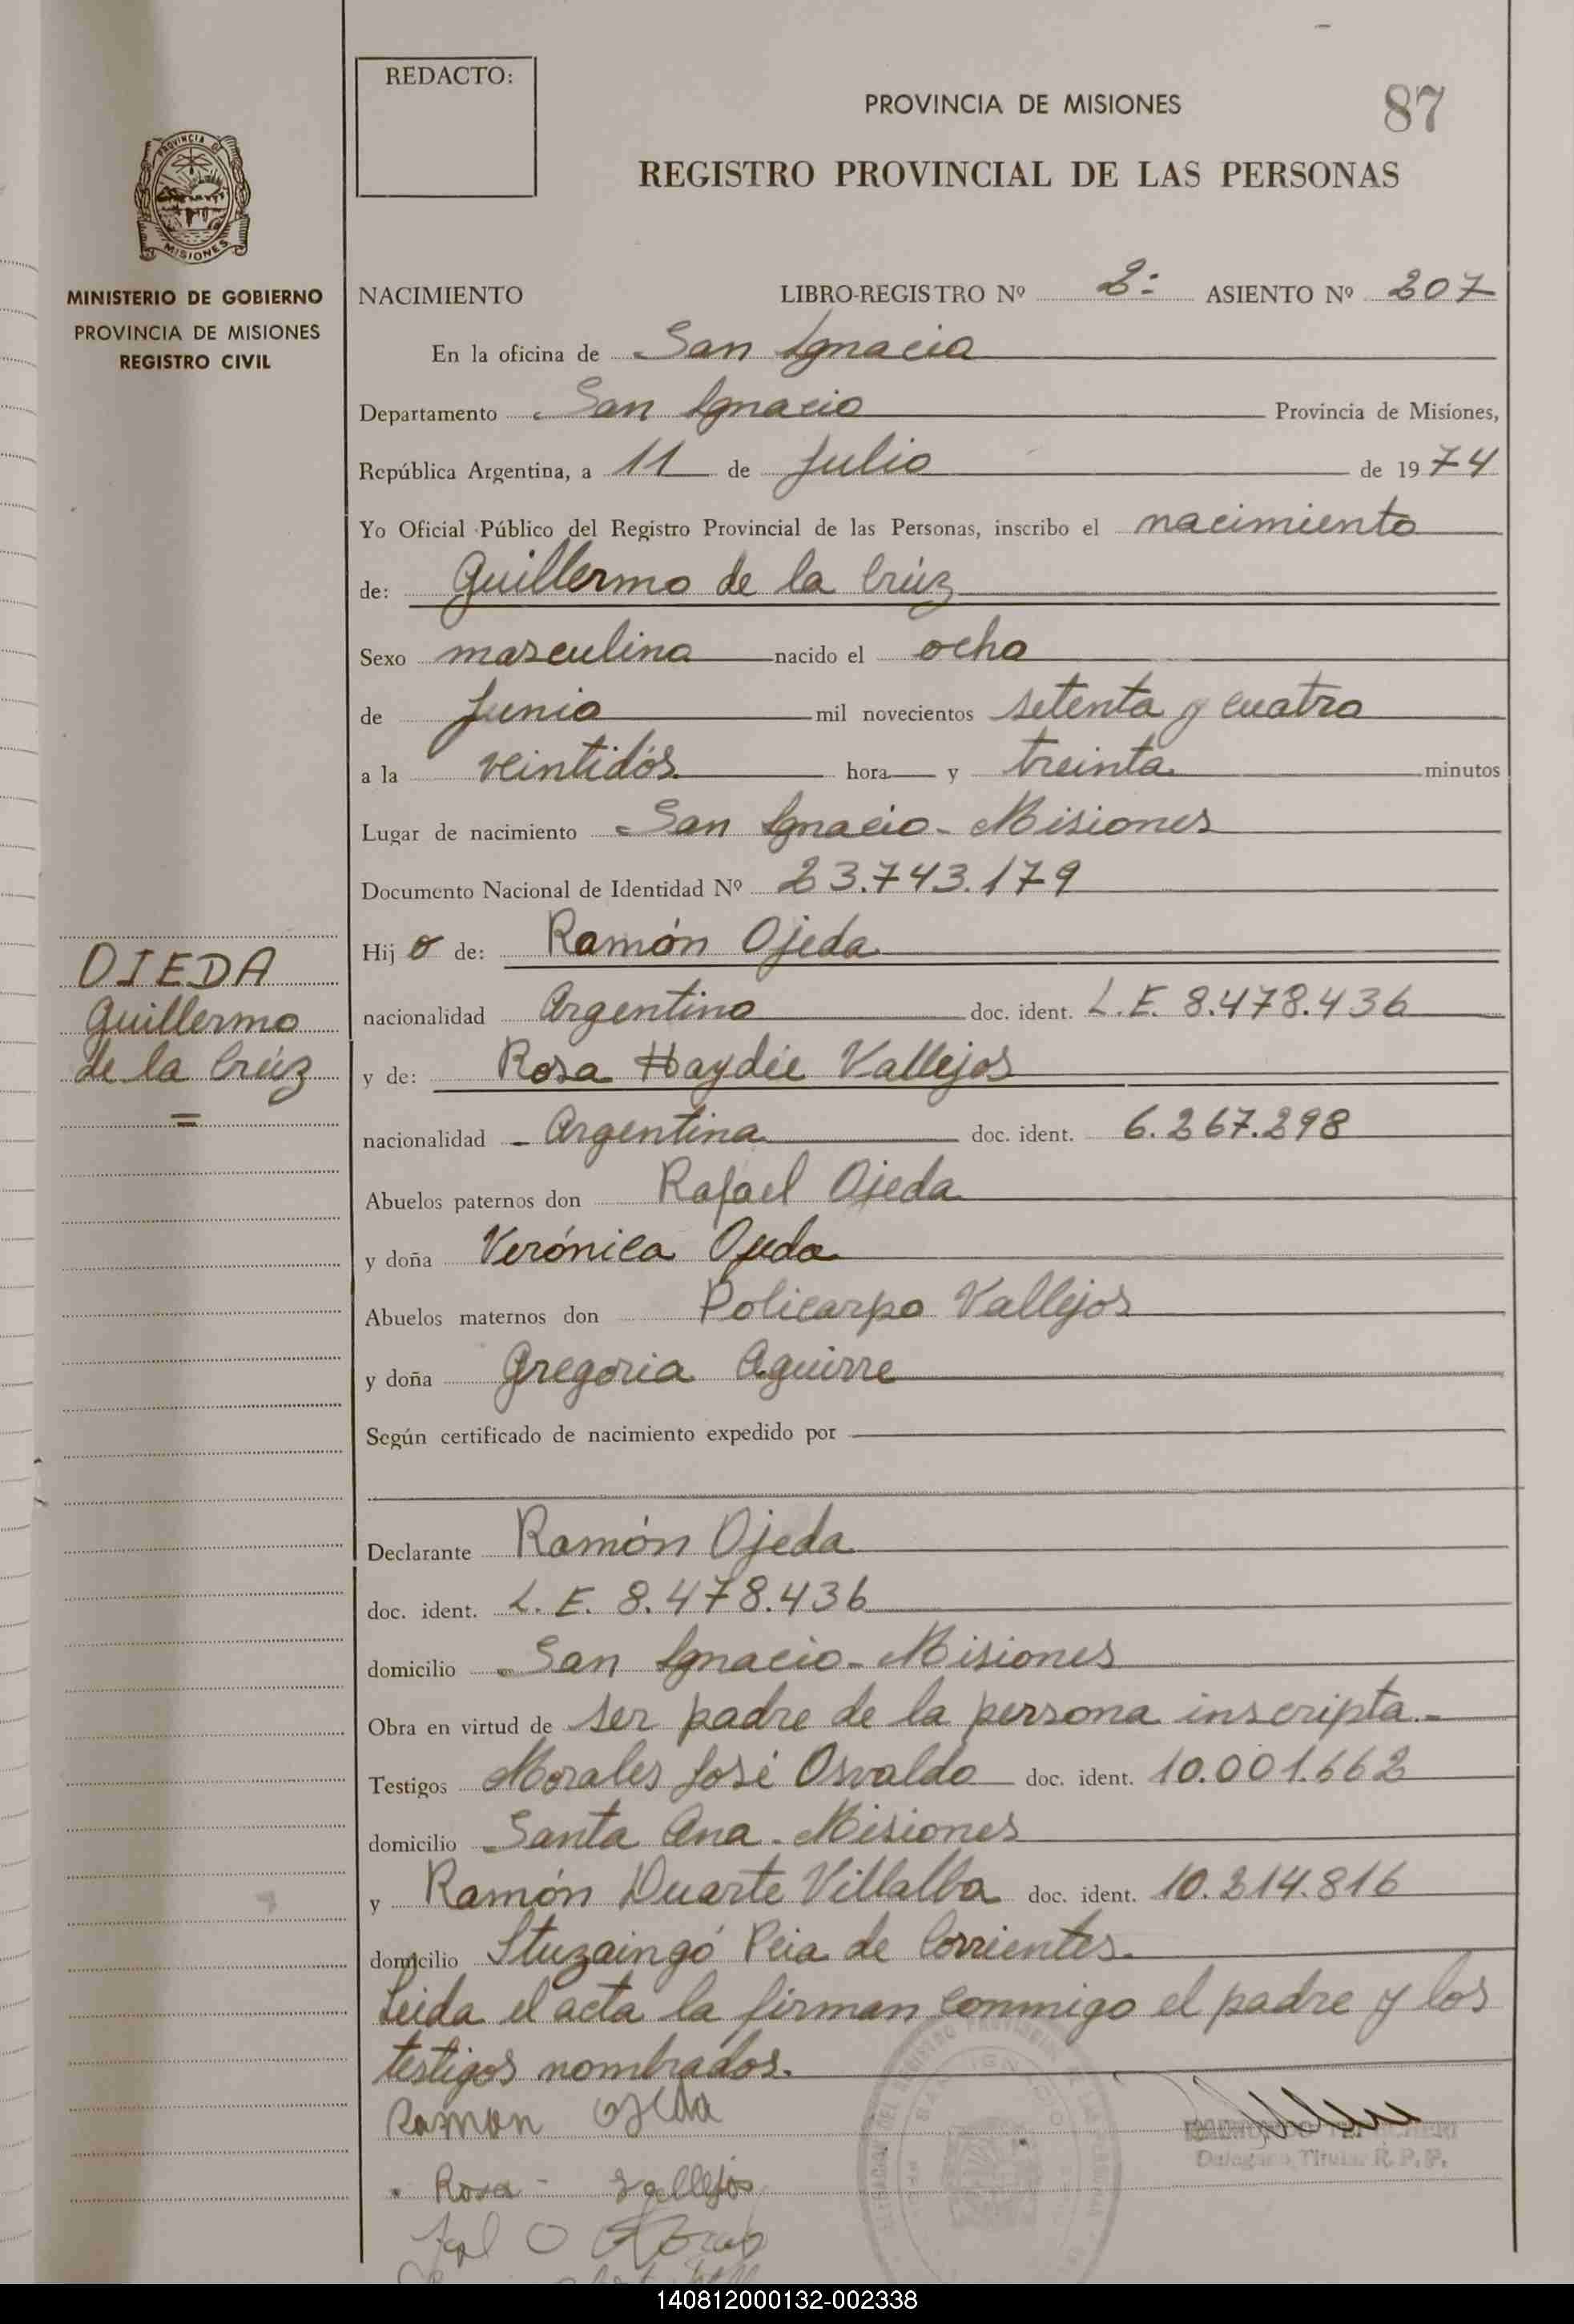 REDACTO:
PROVINCIA DE MISIONES
87
REGISTRO PROVINCIAL DE LAS PERSONAS
PROVINCIA DE
MISIONES
MINISTERIO DE GOBIERNO
PROVINCIA DE MISIONES
REGISTRO CIVIL
NACIMIENTO LIBRO-REGISTRO Nº 2- ASIENTO Nº 207
En la oficina de San Ignacio
Departamento San Ignacio Provincia de Misiones,
República Argentina, a 11 de Julio de 1974
Yo Oficial Público del Registro Provincial de las Personas, inscribo el nacimiento
de: Guillermo de la Crúz
Sexo masculino nacido el ocho
de Junio mil novecientos setenta y cuatro
a la veintidós hora y treinta minutos
Lugar de nacimiento San Ignacio - Misiones
Documento Nacional de Identidad Nº 23.743.179
Hijo de: Ramón Ojeda
nacionalidad Argentino doc. ident. L.E. 8.478.436
y de: Rosa Haydée Vallejos
nacionalidad Argentina doc. ident. 6.267.298
Abuelos paternos don Rafael Ojeda
y doña Verónica Ojeda
Abuelos maternos don Policarpo Vallejos
y doña Gregoria Aguirre
Según certificado de nacimiento expedido por
OJEDA
Guillermo
de la Crúz
=
Declarante Ramón Ojeda
doc. ident. L. E. 8.478.436
domicilio San Ignacio - Misiones
Obra en virtud de ser padre de la persona inscripta.-
Testigos Morales José Osvaldo doc. ident. 10.001.662
domicilio Santa Ana - Misiones
y Ramón Duarte Villalba doc. ident. 10.214.816
domicilio Ituzaingó Pcia de Corrientes.
Leida el acta la firman conmigo el padre y los
testigos nombrados.
Ramon Ojeda
Rosa - Vallejos
Delegado Titular R. P. P.
140812000132-002338